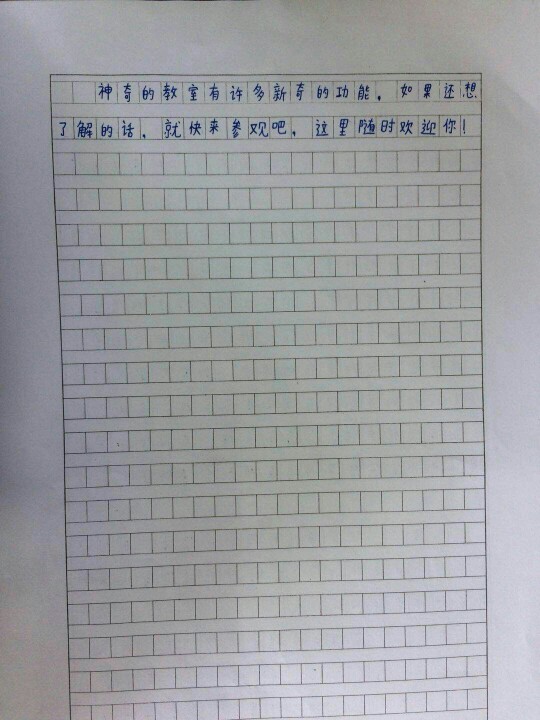 神奇的教室有许多新奇的功能，如果还想
了解的话，就快来参观吧，这里随时欢迎你！